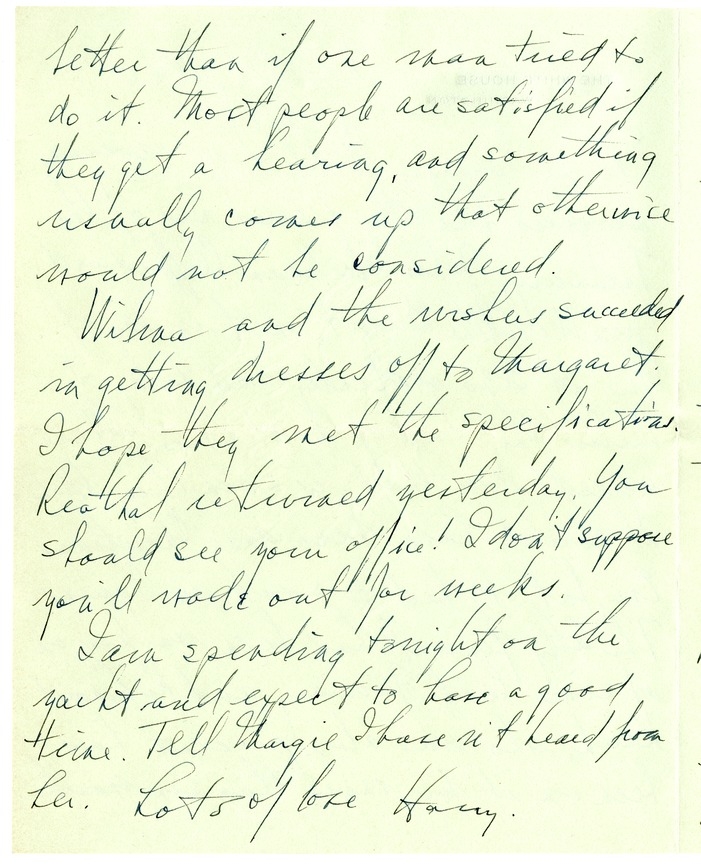 better than if one man tried to
do it. Most people are satisfied if
they get a hearing, and something
usually comes up that otherwise
would not be considered.
Wilma and the ushers succeeded
in getting dresses off to Margaret.
I hope they met the specifications.
Reathal returned yesterday. You
should see your office! I don't suppose
you'll wade out for weeks.
I am spending tonight on the
yacht and expect to have a good
time. Tell Margie I haven't heard from
her. Lots of love Harry.